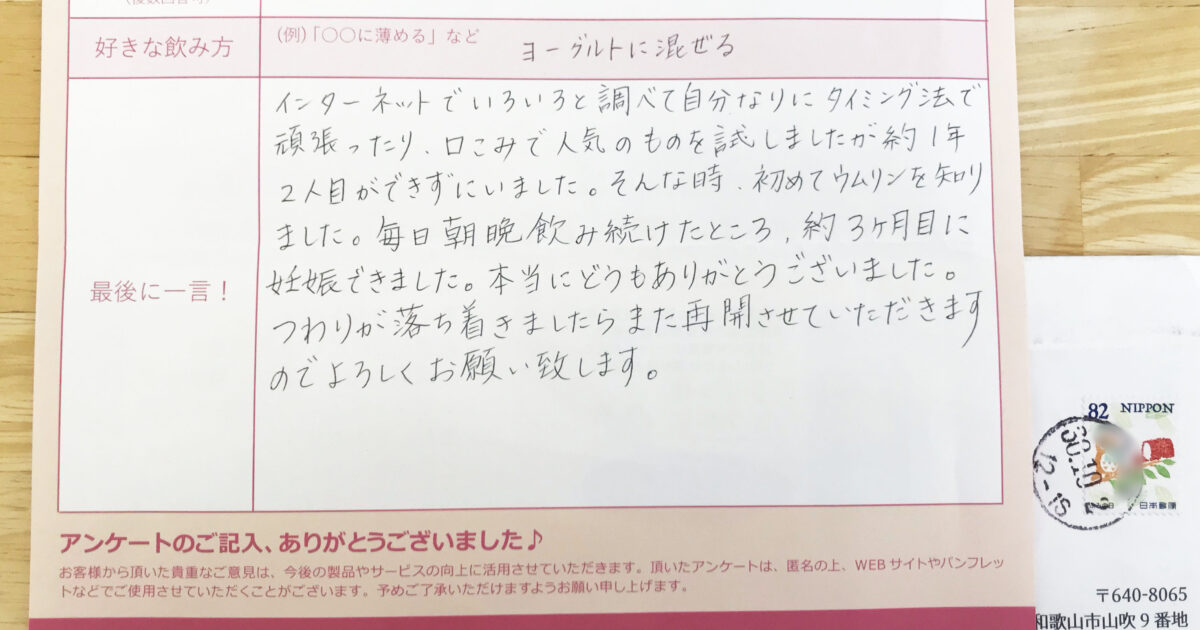 (複数回答可)
好きな飲み方
(例)「〇〇に薄める」など
ヨーグルトに混ぜる
最後に一言！
インターネットでいろいろと調べて自分なりにタイミング法で
頑張ったり、口こみで人気のものを試しましたが約1年
2人目ができずにいました。そんな時、初めてウムリンを知り
ました。毎日朝晩飲み続けたところ、約3ヶ月目に
妊娠できました。本当にどうもありがとうございました。
つわりが落ち着きましたらまた再開させていただきます
のでよろしくお願い致します。
アンケートのご記入、ありがとうございました♪
お客様から頂いた貴重なご意見は、今後の製品やサービスの向上に活用させていただきます。頂いたアンケートは、匿名の上、WEBサイトやパンフレッ
トなどでご使用させていただくことがございます。予めご了承いただけますようお願い申し上げます。
82 NIPPON
30.10.2
12-18
日本郵便
〒640-8065
和歌山市山吹9番地